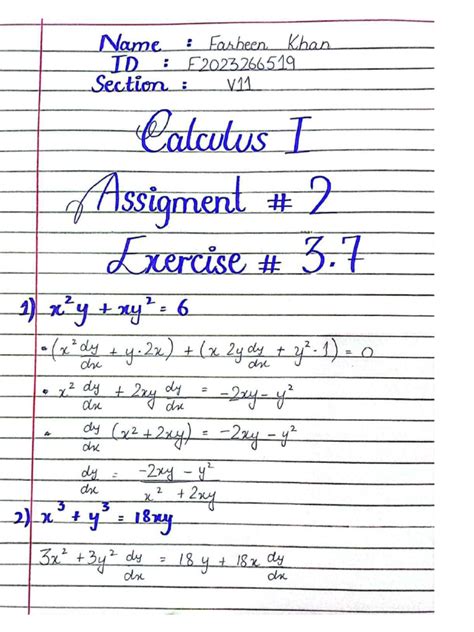 Name : Farheen Khan
ID : F2023266519
Section : V11
Calculus I
Assigment # 2
Exercise # 3.7
1) x²y + xy² = 6
• (x² dy/dx + y·2x) + (x 2y dy/dx + y²·1) = 0
• x² dy/dx + 2xy dy/dx = -2xy - y²
• dy/dx (x² + 2xy) = -2xy - y²
dy/dx = -2xy - y² / x² + 2xy
2) x³ + y³ = 18xy
3x² + 3y² dy/dx = 18y + 18x dy/dx